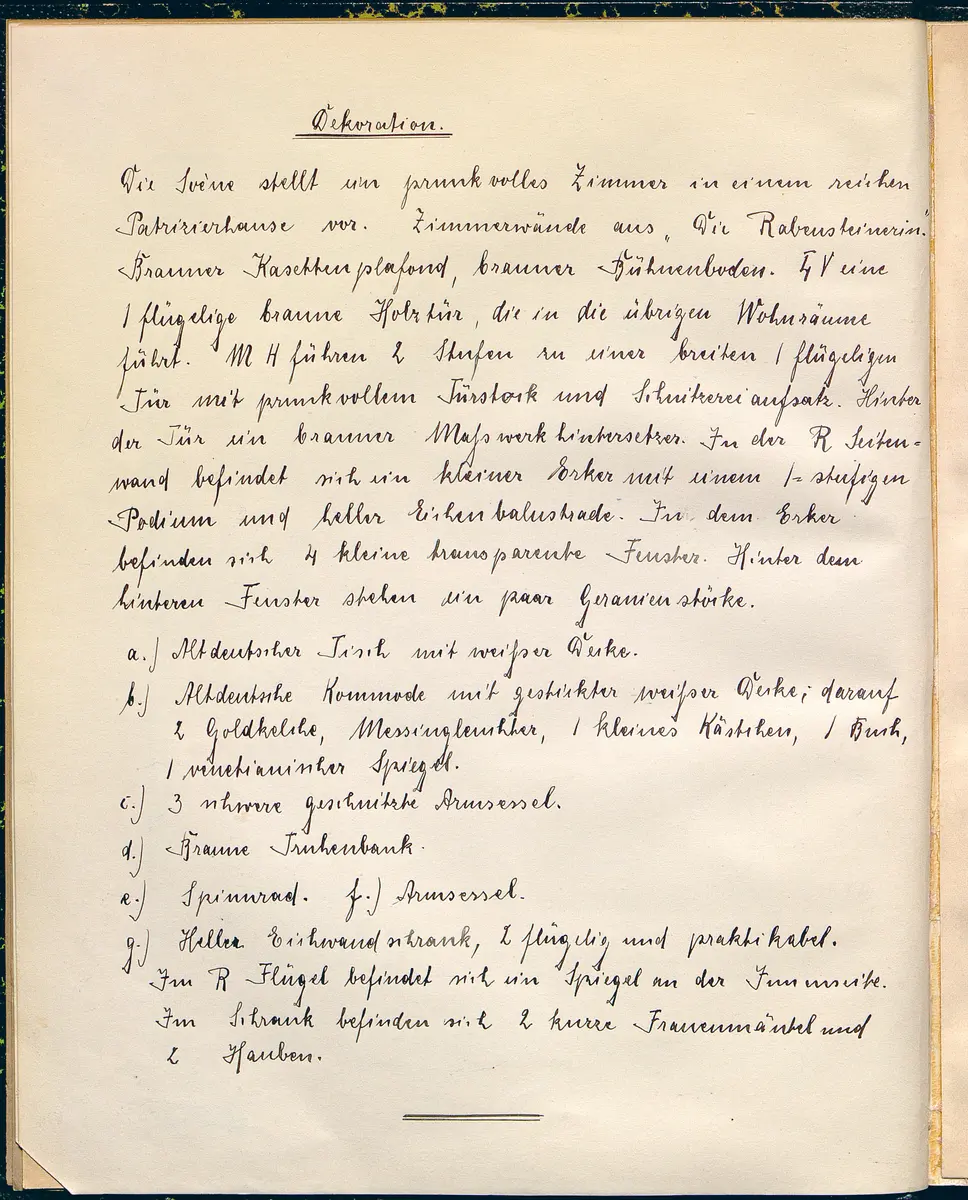 Dekoration.
Die Scéne stellt ein prunkvolles Zimmer in einem reichen
Patrizierhause vor. Zimmerwände aus „Die Rabensteinerin."
Brauner Kasettenplafond, brauner Bühnenboden. L V eine
1 flügelige braune Holztür, die in die übrigen Wohnräume
führt. M H führen 2 Stufen zu einer breiten 1 flügeligen
Tür mit prunkvollem Türstock und Schnitzereiaufsatz. Hinter
der Tür ein brauner Maßwerkhintersetzer. In der R Seiten=
wand befindet sich ein kleiner Erker mit einem 1=stufigen
Podium und heller Eichenbalustrade. In dem Erker
befinden sich 4 kleine transparente Fenster. Hinter dem
hinteren Fenster stehen ein paar Geranienstöcke.
a.) Altdeutscher Tisch mit weißer Decke.
b.) Altdeutsche Kommode mit gestickter weißer Decke; darauf
2 Goldkelche, Messingleuchter, 1 kleines Kästchen, 1 Buch,
1 venetianischer Spiegel.
c.) 3 schwere geschnitzte Armsessel.
d.) Braune Truhenbank.
e.) Spinnrad. f.) Armsessel.
g.) Heller Eichwandschrank, 2 flügelig und praktikabel.
Im R Flügel befindet sich ein Spiegel an der Innenseite.
Im Schrank befinden sich 2 kurze Frauenmäntel und
2 Hauben.